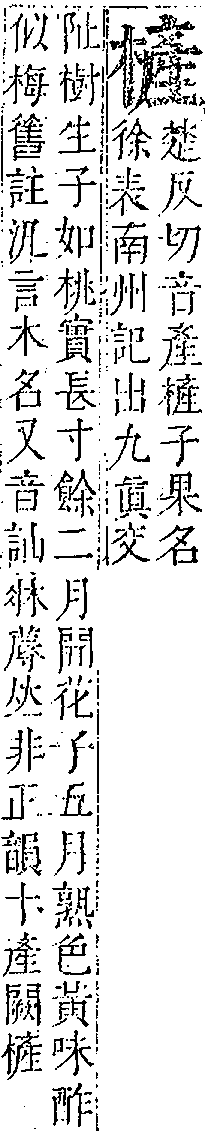 㯆
楚反切音產㯆子果名
徐表南州記出九眞交
阯樹生子如桃實長寸餘二月開花子五月熟色黃味酢
似梅舊註汎言木名又音訕牀蓐𠀤非正韻十產闕㯆